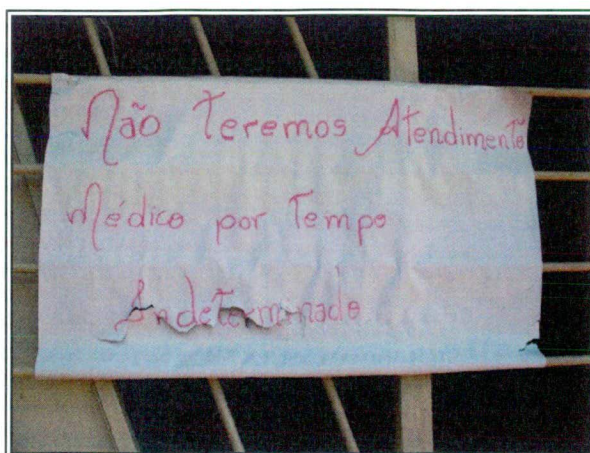 Não Teremos Atendimento
Médico por Tempo
Indeterminado